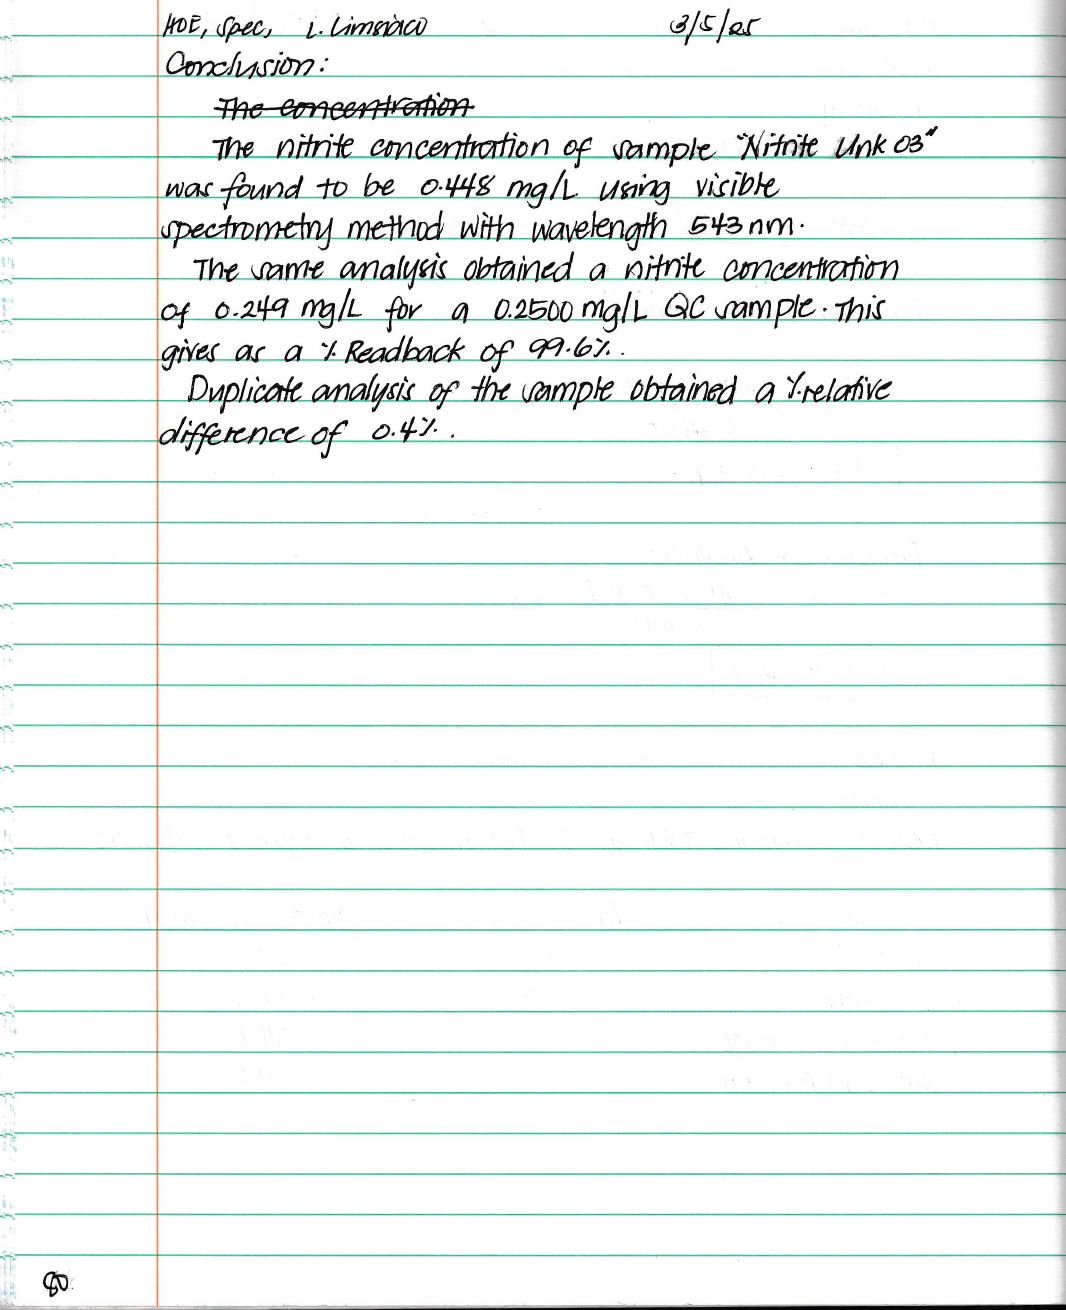 HOE, Spec, L. Limsiaco 3/5/25
Conclusion:
The concentration
The nitrite concentration of sample "Nitrite Unk 03"
was found to be 0.448 mg/L using visible
spectrometry method with wavelength 543 nm.
The same analysis obtained a nitrite concentration
of 0.249 mg/L for a 0.2500 mg/L QC sample. This
gives as a % Readback of 99.6%.
Duplicate analysis of the sample obtained a % relative
difference of 0.4%.
80